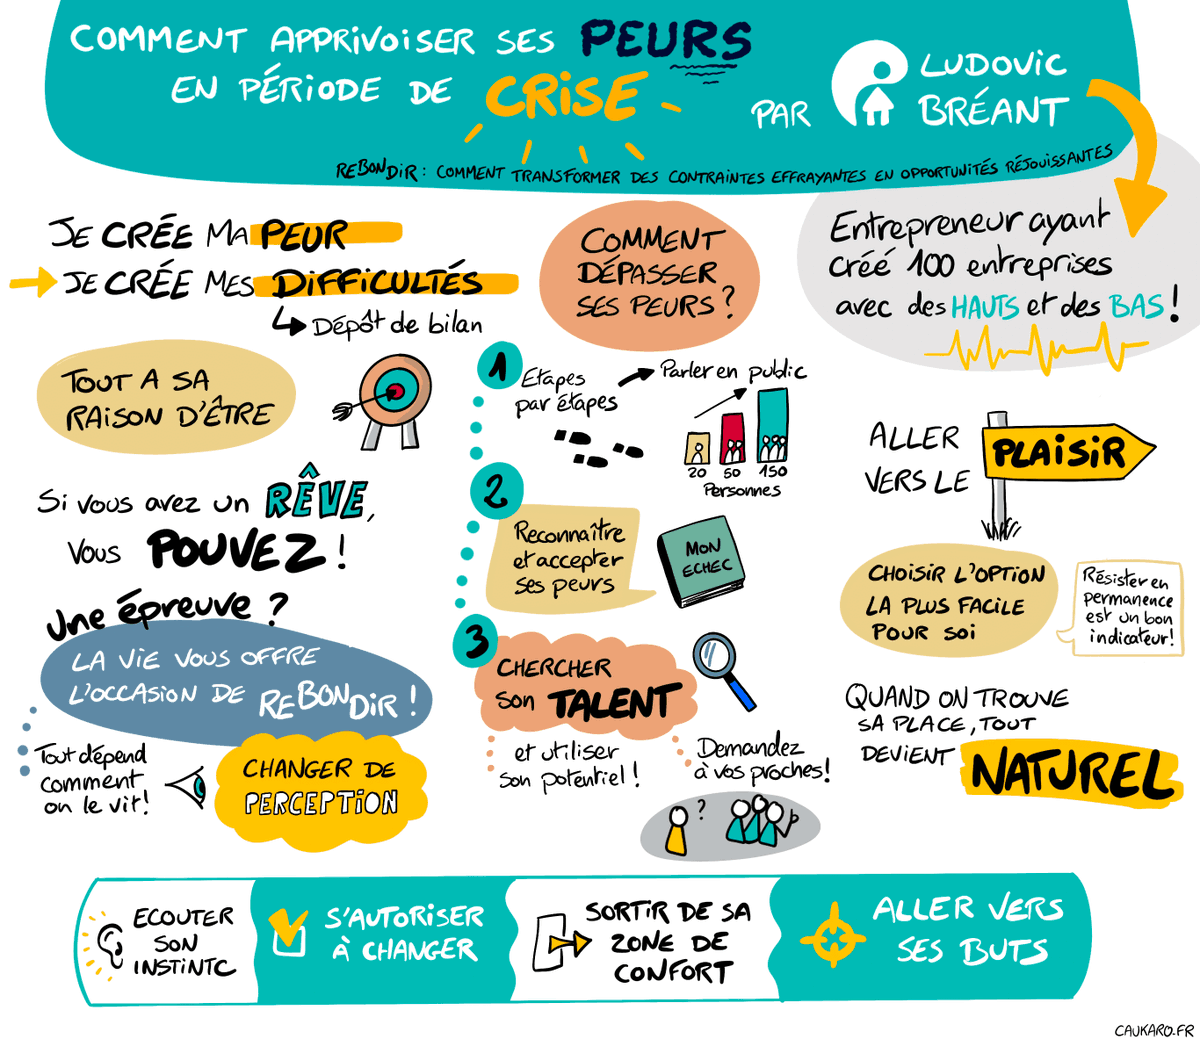 COMMENT APPRIVOISER SES PEURS
EN PÉRIODE DE CRISE
PAR
LUDOVIC
BRÉANT
REBONDIR : COMMENT TRANSFORMER DES CONTRAINTES EFFRAYANTES EN OPPORTUNITÉS RÉJOUISSANTES
JE CRÉE MA PEUR
JE CRÉE MES DIFFICULTÉS
Dépôt de bilan
TOUT A SA
RAISON D'ÊTRE
Si vous avez un RÊVE,
vous POUVEZ !
Une épreuve ?
LA VIE VOUS OFFRE
L'OCCASION DE REBONDIR !
Tout dépend
comment
on le vit !
CHANGER DE
PERCEPTION
COMMENT
DÉPASSER
SES PEURS ?
1
Etapes
par étapes
Parler en public
20 50 150
Personnes
2
Reconnaître
et accepter
ses peurs
MON
ECHEC
3
CHERCHER
son TALENT
et utiliser
son potentiel !
Demandez
à vos proches !
?
Entrepreneur ayant
créé 100 entreprises
avec des HAUTS et des BAS !
ALLER
VERS LE
PLAISIR
CHOISIR L'OPTION
LA PLUS FACILE
POUR SOI
Résister en
permanence
est un bon
indicateur !
QUAND ON TROUVE
SA PLACE, TOUT
DEVIENT NATUREL
ECOUTER
SON
INSTINTC
S'AUTORISER
À CHANGER
SORTIR DE SA
ZONE DE
CONFORT
ALLER VERS
SES BUTS
CAUKARO.FR